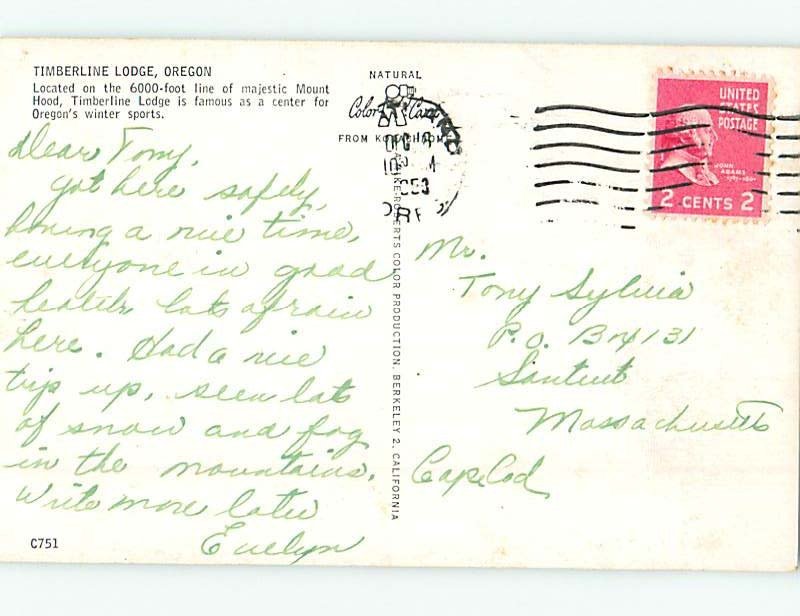 TIMBERLINE LODGE, OREGON
Located on the 6000-foot line of majestic Mount
Hood, Timberline Lodge is famous as a center for
Oregon's winter sports.
Dear Tony,
Got here safely,
having a nice time,
everyone in good
health lots of rain
here. Had a nice
trip up, seen lots
of snow and fog
in the mountains.
Write more later
Evelyn
C751
NATURAL
Color Card
FROM KODACHROME
MIKE ROBERTS COLOR PRODUCTION, BERKELEY 2, CALIFORNIA
1953
ORE
UNITED
STATES
POSTAGE
JOHN
ADAMS
2 CENTS 2
Mr.
Tony Sylvia
P.O. Box 131
Santuit
Massachusetts
Cape Cod